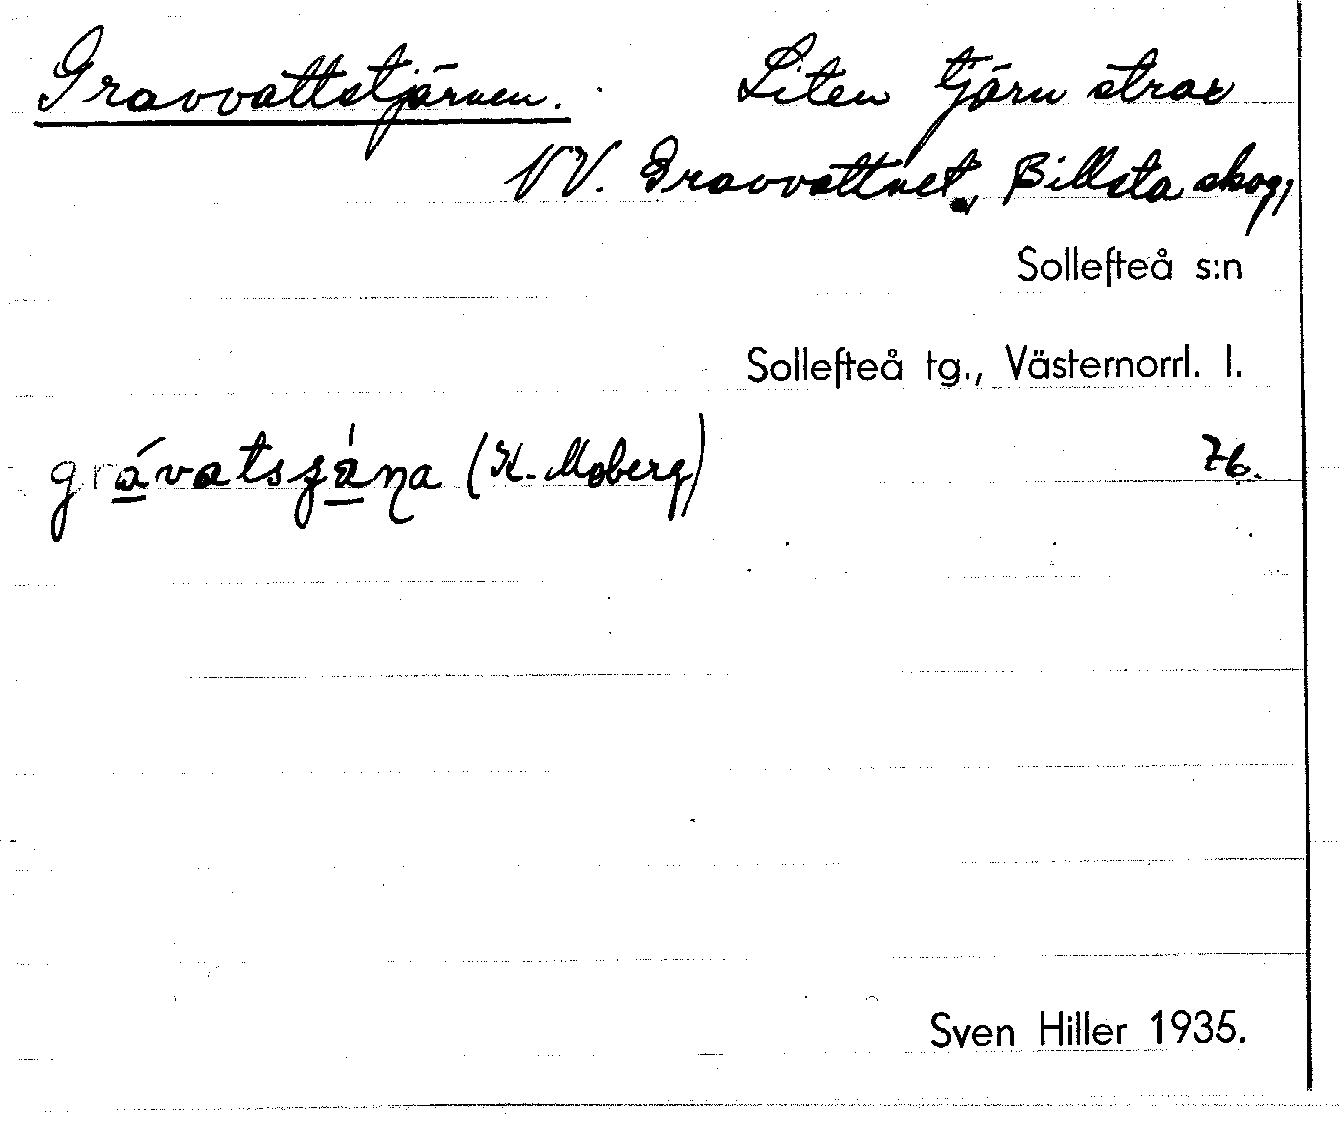 Gravvattstjärnen. Liten tjärn strax
NV. Gravvattnet, Billsta skog,
Sollefteå s:n
Sollefteå tg., Västernorrl. l.
grávatszȧ́ŋa (K. Moberg) 76.
Sven Hiller 1935.